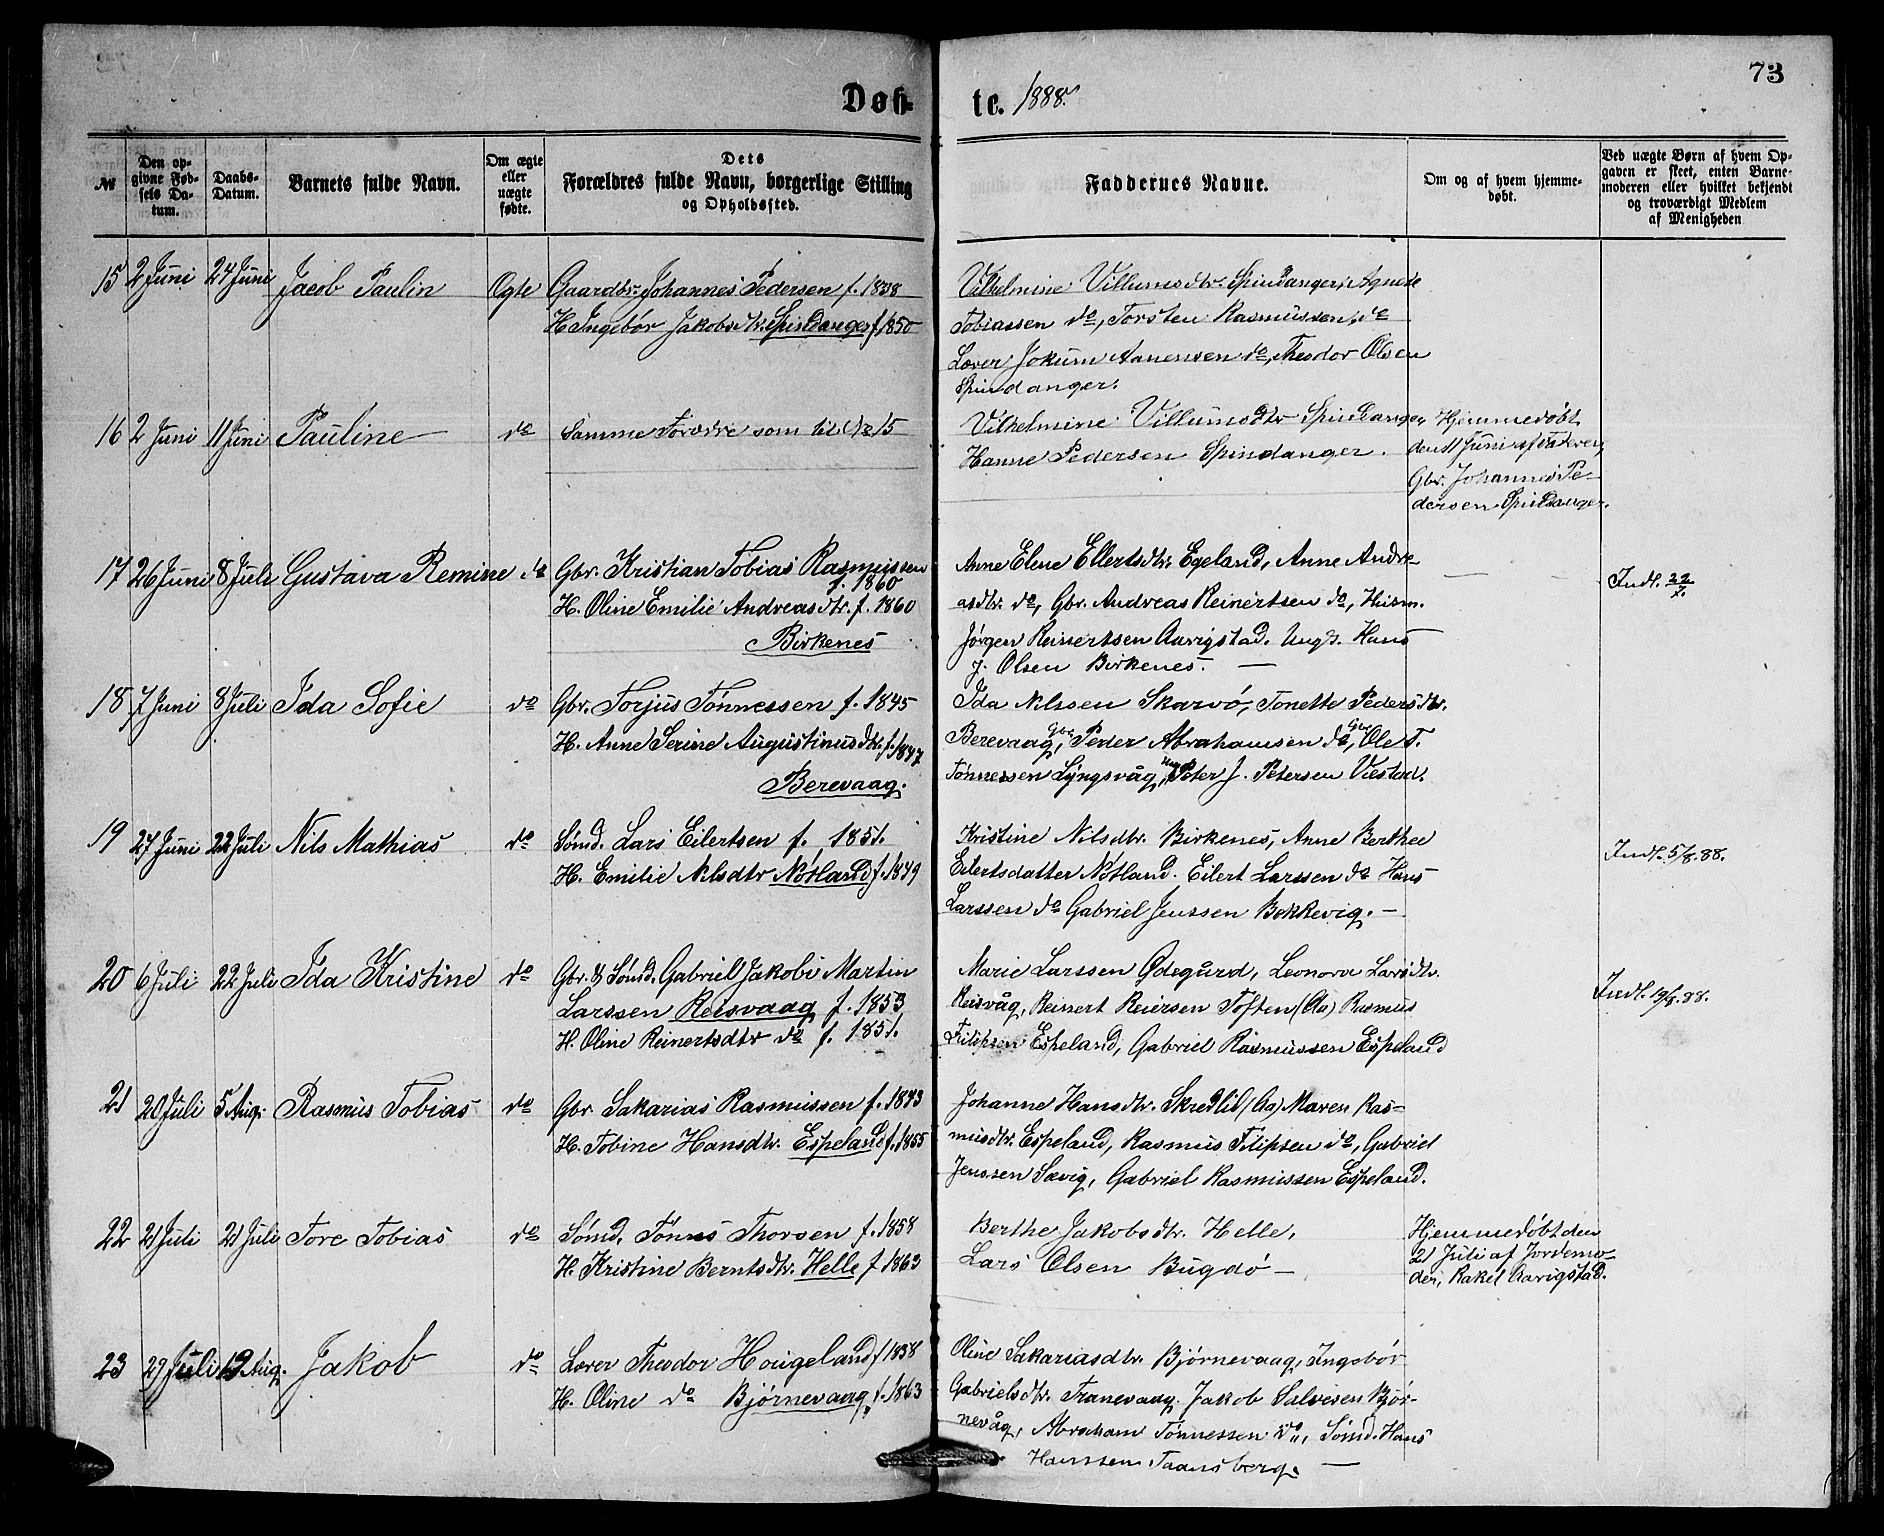 73
Døb- te. 1888.
№
Den opgivne Fødsels Datum.
Daabs-Datum.
Barnets fulde Navn.
Om ægte eller uægte fødte.
Dets
Forældres fulde Navn, borgerlige Stilling
og Opholdssted.
Faddernes Navne.
Om og af hvem hjemmedøbt.
Ved uægte Børn af hvem Opgaven er skeet, enten Barnemoderen eller hvilket bekjendt og troværdigt Medlem af Menigheden
15 2 Juni 24 Juni Jacob Paulin Ogte Gaardbr. Johannes Pedersen f. 1838
H. Ingebør Jakobsdtr. Spindanger f. 1850
Vilhelmine Villumsdtr. Spindanger, Agnete
Tobiassen do, Torsten Rasmussen, do
Lærer Jokum Aanensen do, Theodor Olsen
Spindanger.
16 2 Juni 11 Juni Pauline do Samme Forædre som til No 15
Vilhelmine Villumsdtr Spindanger,
Hanne Pedersen Spindanger.
Hjemmedøbt
den 11 Juni af Faderen,
Gbr. Johannes Pe-
dersen Spindanger.
17 26 Juni 8 Juli Gustava Remine do Gbr. Kristian Tobias Rasmussen
f. 1860
H. Oline Emilie Andreasdtr. f. 1860
Birkenes
Anne Elene Ellertsdtr. Egeland, Anne Andre-
asdtr. do, Gbr. Andreas Reinertsen do, Husm.
Jørgen Reinertsen Aarigstad. Ungk. Hans
J. Olsen Birkenes. —
Indl. 22/7.
18 7 Juni 8 Juli Ida Sofie do Gbr. Torjus Tønnessen f. 1845
H. Anne Serine Augustinusdtr. f. 1847
Berevaag.
Ida Nilssen Skarvø, Tonette Pedersdtr.
Berevaag, Gbr. Peder Abrahamsen do, Gbr. Ole T.
Tønnessen Lyngsvåg, Peter J. Petersen Vastad.
19 27 Juni 22 Juli Nils Mathias do Sømd. Lars Eilertsen f. 1851.
H. Emilie Nilsdtr Nøtland f. 1849
Kristine Nilsdtr. Birkenes, Anne Berthea
Eilertsdatter Nøtland. Eilert Larssen do Hans
Larssen do Gabriel Jenssen Bokkevig. —
Indl. 5/8. 88.
20 6 Juli 22 Juli Ida Kristine do Gbr. & Sømd. Gabriel Jakobi Martin
Larssen Reisvaag f. 1853
H. Oline Reinertsdtr do f. 1851.
Marie Larssen Ødegård, Leonora Larsdtr.
Reisvåg, Reinert Reiersen Toften (Aa) Rasmus
Filipsen Espeland, Gabriel Rasmussen Espeland
Indl. 19/8. 88.
21 20 Juli 5 Aug. Rasmus Tobias do Gbr Sakarias Rasmussen f. 1843
H. Tobine Hansdtr. Espeland f. 1855
Johanne Hansdtr. Skredlil (Aa) Maren Ras-
musdtr. Espeland, Rasmus Filipsen do, Gabriel
Jenssen Sævig, Gabriel Rasmussen Espeland.
22 21 Juli 21 Juli Tore Tobias do Sømd. Tønnes Thorsen f. 1858
H. Kristine Berntsdtr. Helle f 1863
Berthe Jakobsdtr. Helle,
Lars Olsen Bugdø —
Hjemmedøbt den
21 Juli af Jordemo-
der, Rakel Aarigstad.
23 29 Juli 12 Aug. Jakob do Lærer Theodor Hougeland f 1838
H. Oline do Bjørnevaag, f. 1863
Oline Sakariasdtr. Bjørnevaag, Ingebør
Gabrielsdtr. Tranevaag. Jakob Salvesen Bjør-
nevåg, Abraham Tønnessen do, Sømd. Hans
Hanssen Taansberg. —